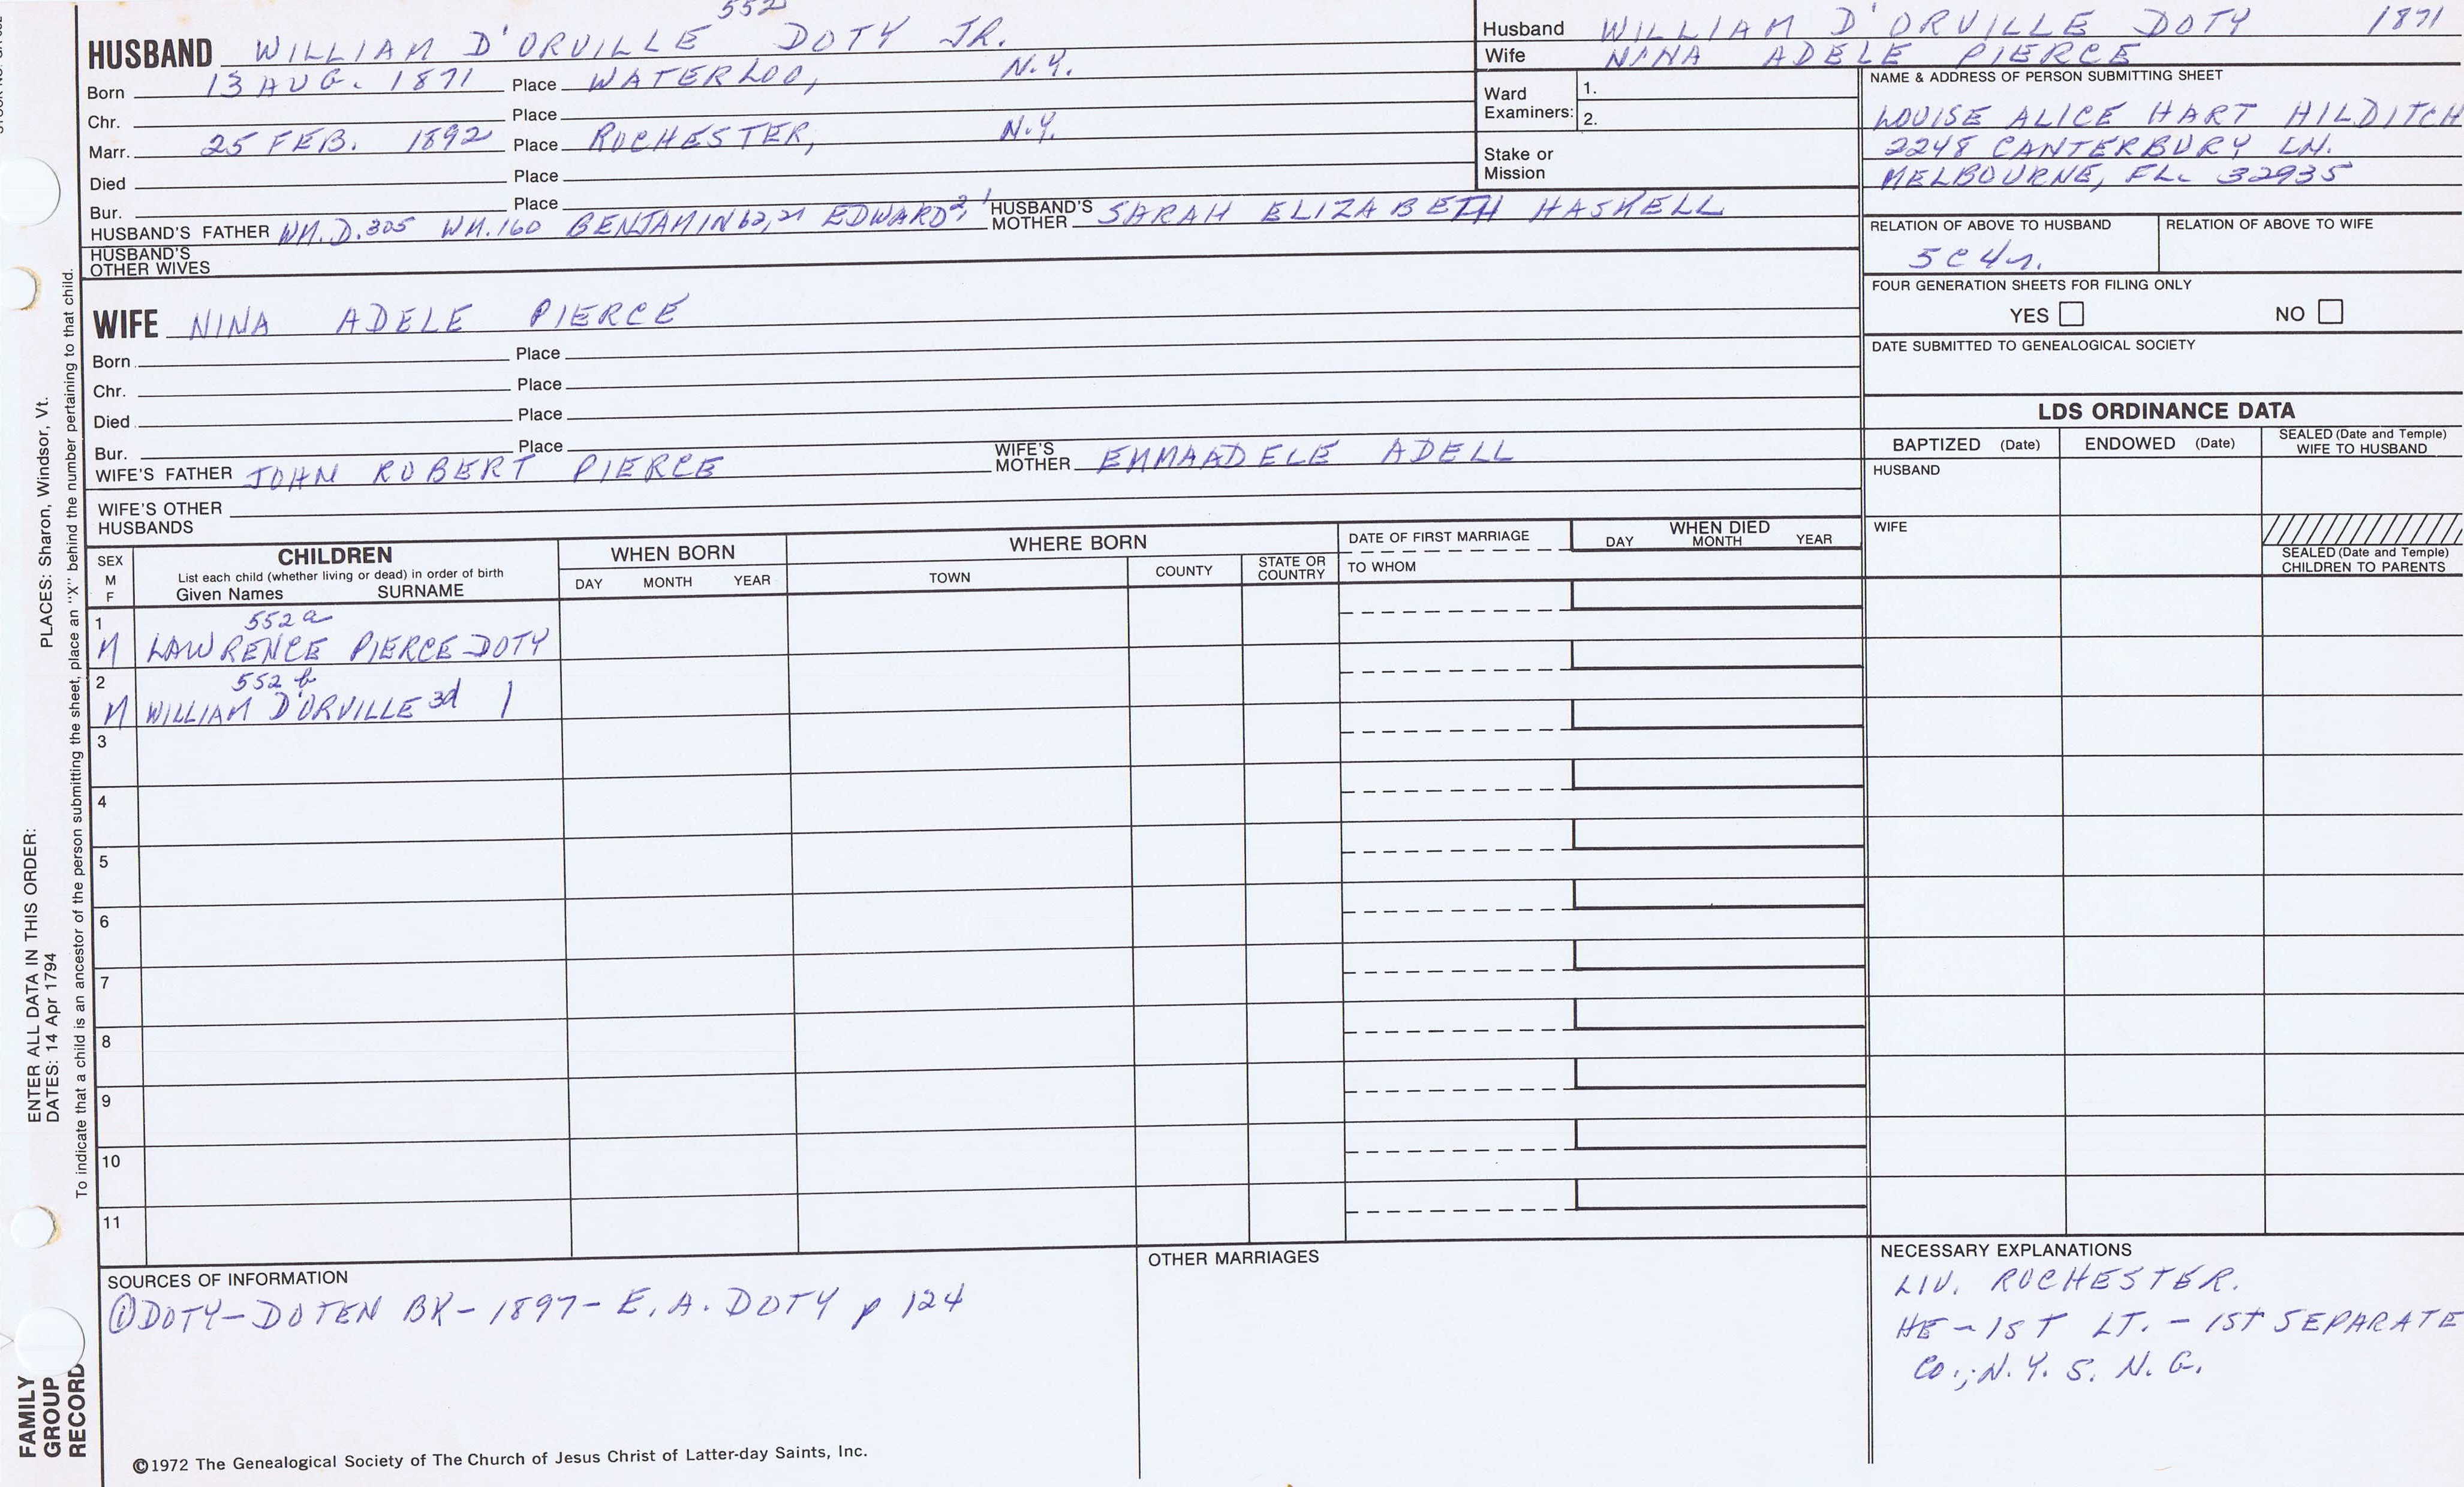 552
HUSBAND WILLIAM D'ORVILLE DOTY JR.
Born 13 AUG. 1871 Place WATERLOO, N.Y.
Chr. Place
Marr. 25 FEB. 1892 Place ROCHESTER, N.Y.
Died Place
Bur. Place
HUSBAND'S FATHER WM. D. 305 WM. 160 BENJAMIN 62, 21 EDWARD 2, 1 HUSBAND'S MOTHER SARAH ELIZABETH HASKELL
HUSBAND'S OTHER WIVES
WIFE NINA ADELE PIERCE
Born Place
Chr. Place
Died Place
Bur. Place
WIFE'S FATHER JOHN ROBERT PIERCE WIFE'S MOTHER EMMAADELE ADELL
WIFE'S OTHER HUSBANDS
Husband WILLIAM D'ORVILLE DOTY 1871
Wife NINA ADELE PIERCE
Ward Examiners: 1.
2.
Stake or Mission
NAME & ADDRESS OF PERSON SUBMITTING SHEET
LOUISE ALICE HART HILDITCH
2248 CANTERBURY LN.
MELBOURNE, FL. 32935
RELATION OF ABOVE TO HUSBAND RELATION OF ABOVE TO WIFE
5C4r.
FOUR GENERATION SHEETS FOR FILING ONLY
YES NO
DATE SUBMITTED TO GENEALOGICAL SOCIETY
LDS ORDINANCE DATA
BAPTIZED (Date) ENDOWED (Date) SEALED (Date and Temple) WIFE TO HUSBAND
HUSBAND
WIFE
SEALED (Date and Temple) CHILDREN TO PARENTS
SEX M F
CHILDREN
List each child (whether living or dead) in order of birth
Given Names SURNAME
WHEN BORN
DAY MONTH YEAR
WHERE BORN
TOWN COUNTY STATE OR COUNTRY
DATE OF FIRST MARRIAGE
TO WHOM
WHEN DIED
DAY MONTH YEAR
1 552a
M LAWRENCE PIERCE DOTY
2 552b
M WILLIAM D'ORVILLE 3d |
3
4
5
6
7
8
9
10
11
SOURCES OF INFORMATION
① DOTY-DOTEN BK-1897-E.A. DOTY p 124
OTHER MARRIAGES
NECESSARY EXPLANATIONS
LIV. ROCHESTER.
HE - 1ST LT. - 1ST SEPARATE
CO.; N.Y.S.N.G.
©1972 The Genealogical Society of The Church of Jesus Christ of Latter-day Saints, Inc.
FAMILY
GROUP
RECORD
ENTER ALL DATA IN THIS ORDER:
DATES: 14 Apr 1794
PLACES: Sharon, Windsor, Vt.
To indicate that a child is an ancestor of the person submitting the sheet, place an "X" behind the number pertaining to that child.